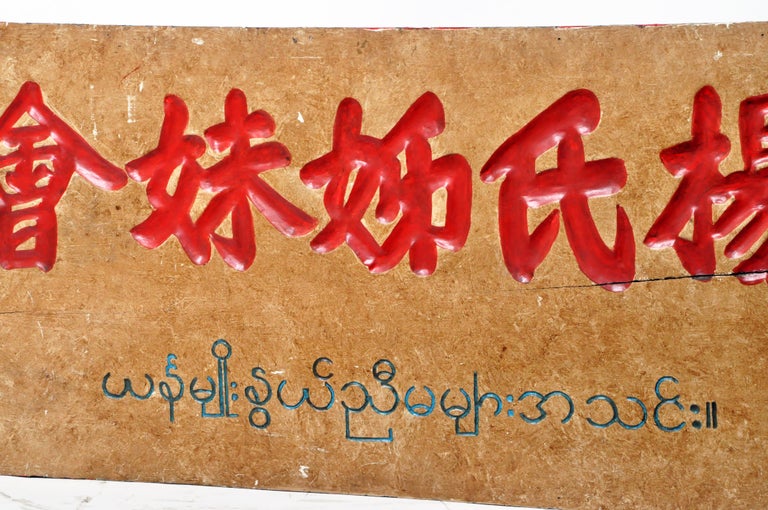 楊氏姊妹會
ယန်မျိုးနွယ်ညီမများအသင်း။